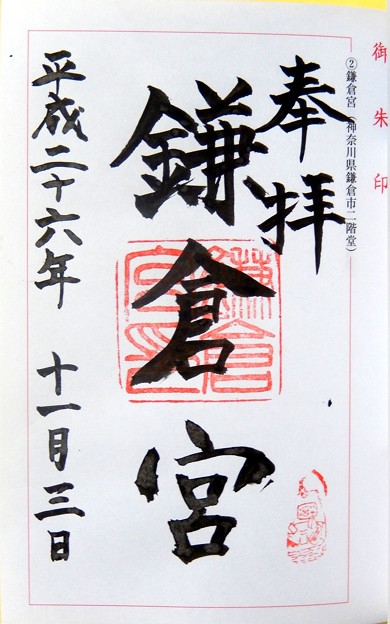 御朱印
②鎌倉宮（神奈川県鎌倉市二階堂）
奉拝
鎌倉宮
鎌倉宮印
平成二十六年 十一月三日